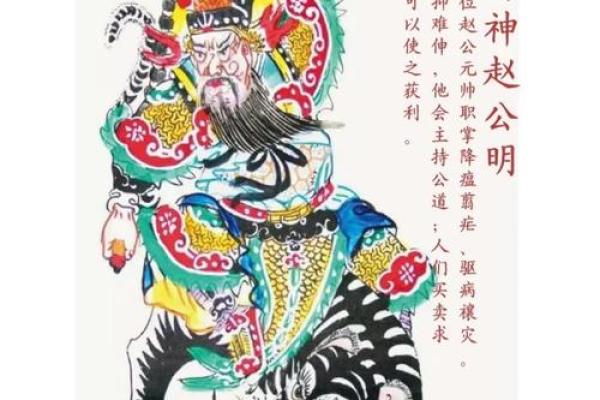 神赵公明
位赵公元帅职掌降瘟翦疟、驱病禳灾。
抑难伸,他会主持公道;人们买卖求
可以使之获利。